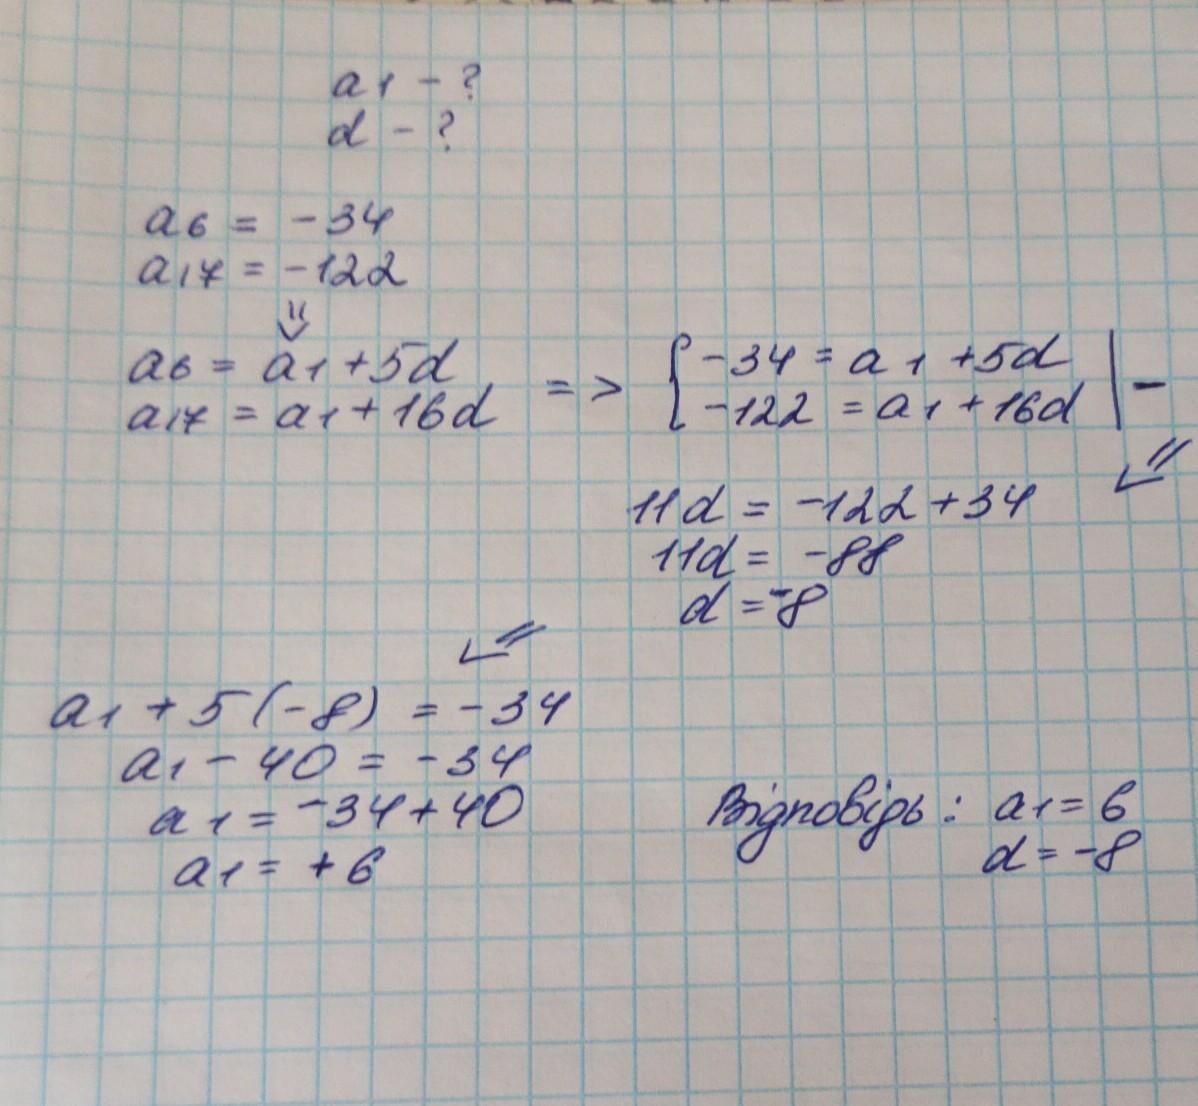 a1 - ?
d - ?
a6 = -34
a17 = -122
a6 = a1 + 5d => { -34 = a1 + 5d | -
a17 = a1 + 16d -122 = a1 + 16d
11d = -122 + 34
11d = -88
d = -8
a1 + 5(-8) = -34
a1 - 40 = -34
a1 = -34 + 40
a1 = +6
Відповідь: a1 = 6
d = -8